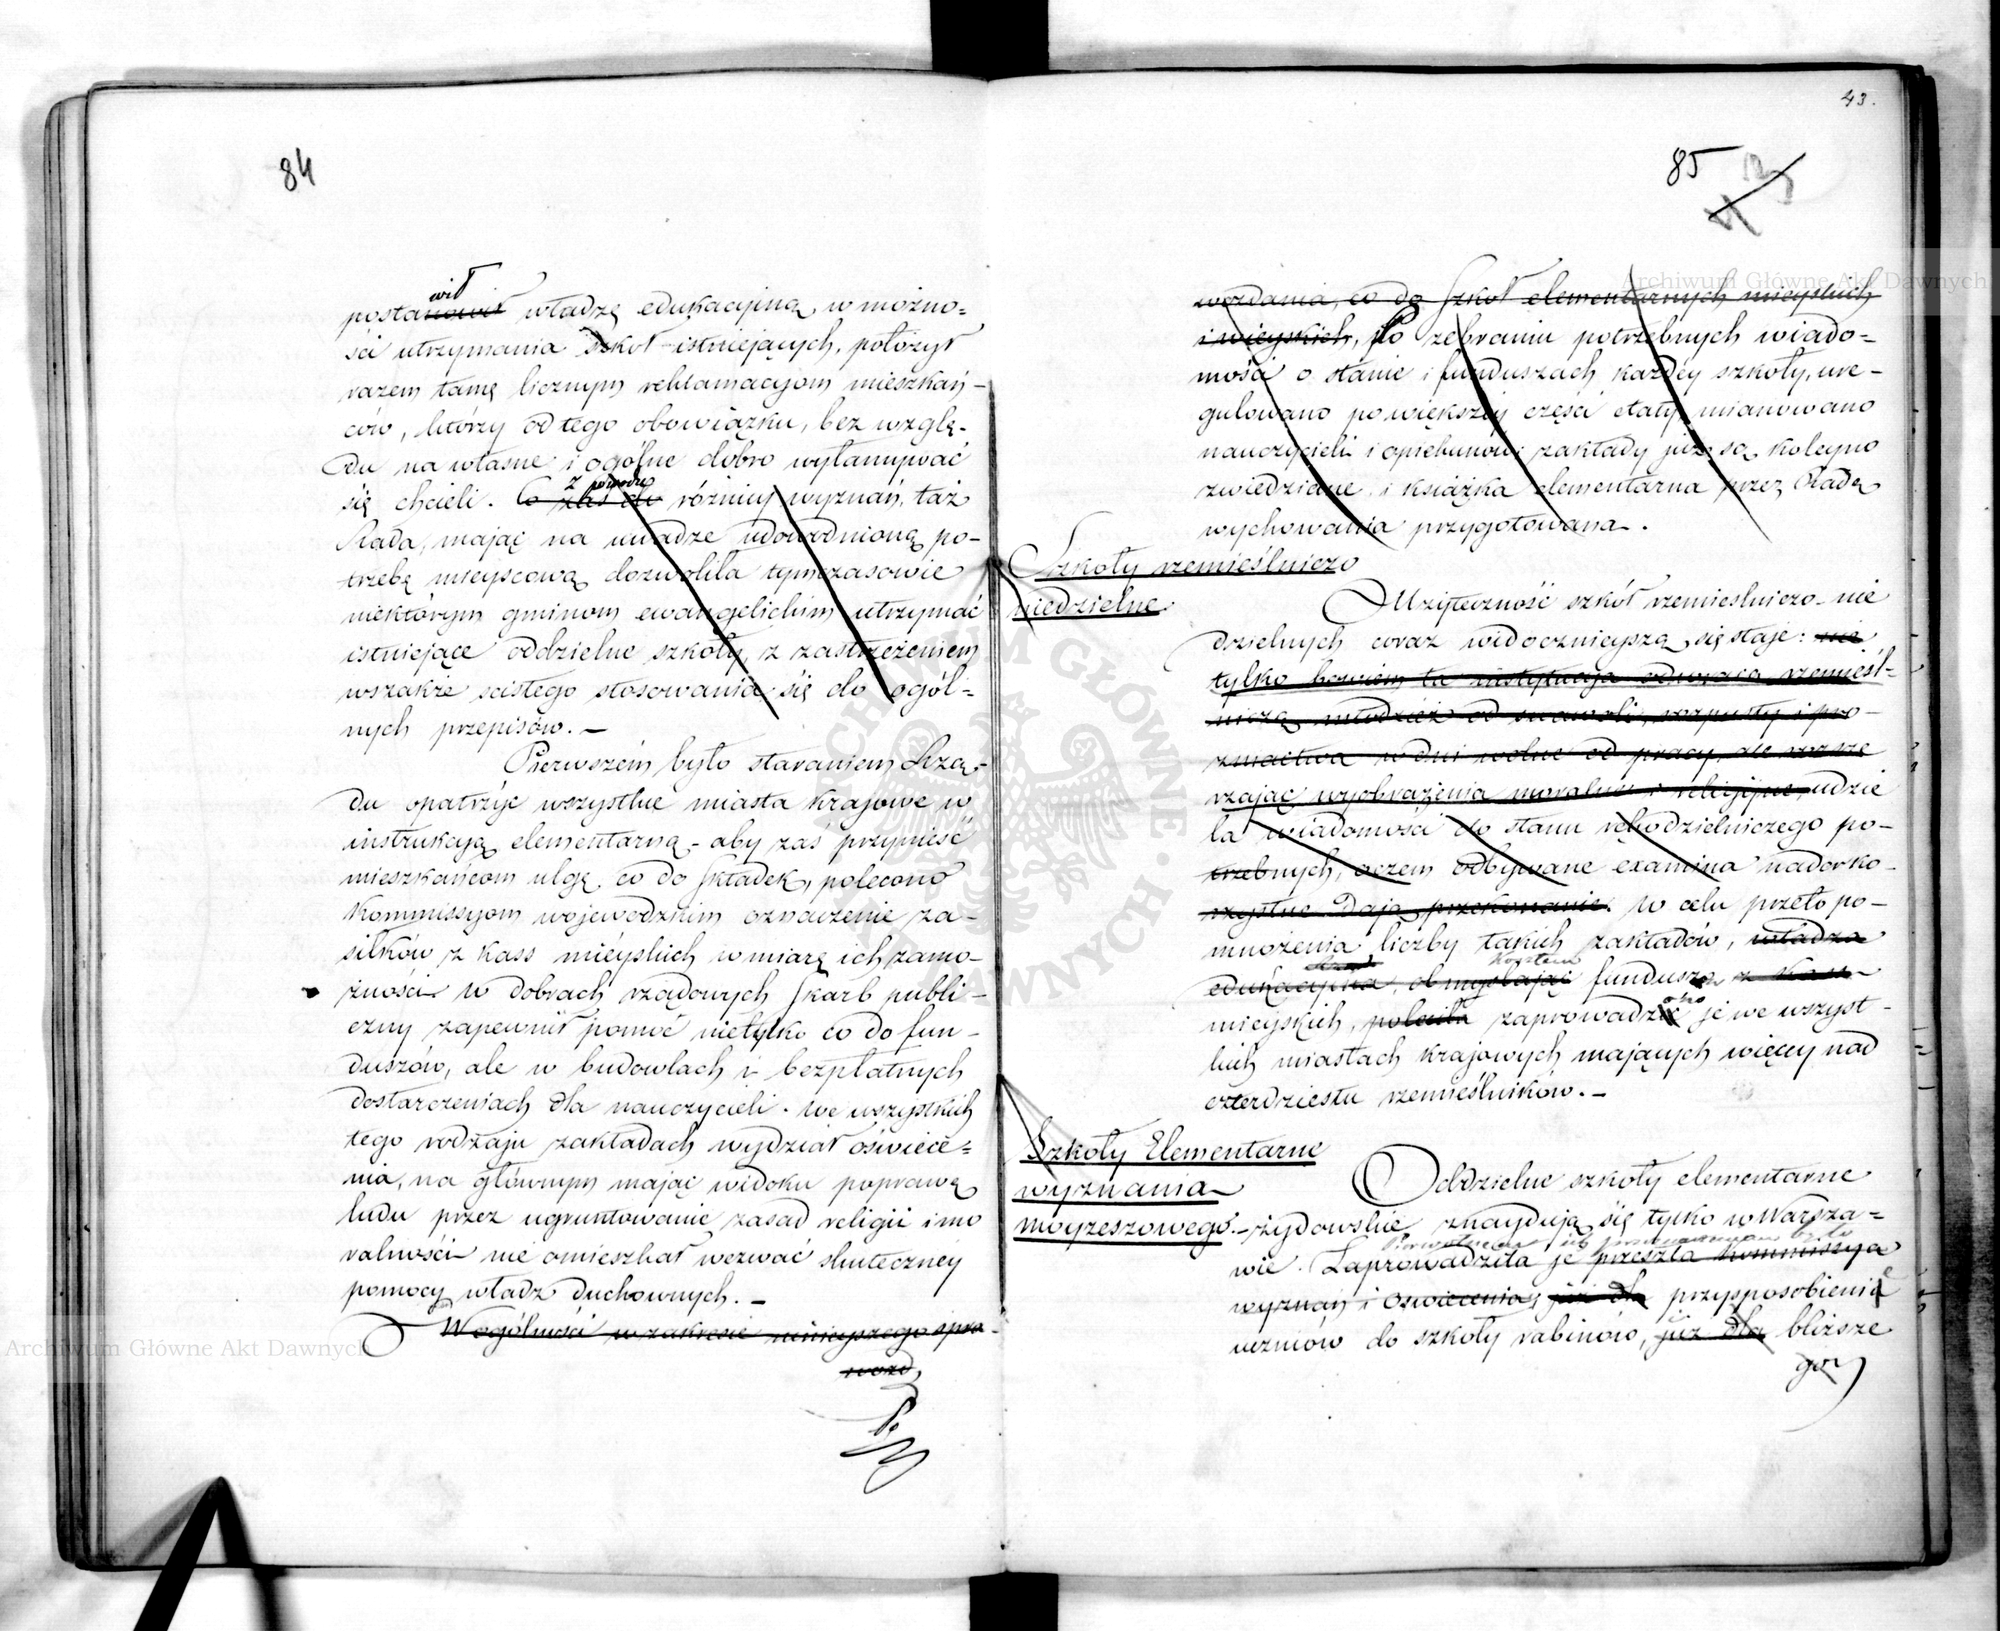 84
wił
postanowił władzę edukacyjną w możno=
ści utrzymania szkół istniejących, położył
razem tamę licznym reklamacyjom mieszkań-
ców, którzy od tego obowiązku, bez wzglę-
du na własne i ogólne dobro wyłamywać
z powodu
się chcieli. Co zaś do różnicy wyznań, taż
Rada, mając na uwadze udowodnioną po-
trzebę mieyscową dozwoliła tymczasowie
niektórym gminom ewangelickim utrzymać
istniejące oddzielne szkoły, z zastrzeżeniem
wszakże scisłego stosowania się do ogól=
nych przepisów. —
Pierwszém było staraniem Rzą-
du opatrzyć wszystkie miasta krajowe w
instrukcyą elementarną - aby zaś przynieść
mieszkańcom ulgę co do składek, polecono
Kommissyom wojewodzkim oznaczenie za-
siłków z kass mieyskich w miarę ich zamo-
żności. W dobrach rządowych skarb publi-
czny zapewnił pomoc nietylko co do fun-
duszów, ale w budowlach i bezpłatnych
dostarczeniach dla nauczycieli. We wszystkich
tego rodzaju zakładach wydział oświece=
nia, na głównym mając widoku poprawę
ludu przez ugruntowanie zasad religii i mo
ralności nie omieszkał wezwać skuteczney
pomocy władz duchownych. —
W ogólności w zakresie ninieyszego spra-
wozd
43.
85
wozdania, co do szkół elementarnych mieyskich
i wieyskich, Po zebraniu potrzebnych wiado=
mości o stanie i funduszach każdey szkoły, ure-
gulowano powiększey części etaty, mianowano
nauczycieli i opiekunów; zakłady już są koleyno
zwiedzane i książka elementarna przez Radę
wychowania przygotowana.
Szkoły rzemieślniczo
niedzielne
Użyteczność szkół rzemieślniczo-nie
dzielnych coraz widocznieyszą się staje: nie
tylko bowiem ta instytucyja odwraca rzemieśl-
niczą młodzież od swawoli, rozpusty i pró-
żniactwa w dni wolne od pracy, ale rozsze
rzając wyobrażenia moralne i religijne, udzie
la wiadomości do stanu rękodzielniczego po-
trzebnych, oczem odbywane examina nader ko-
rzystne dają przekonanie. W celu przeto po-
mnożenia liczby takich zakładów, władza
Rząd kosztem
edukacyjna, obmyślając fundusze z kass
ono
mieyskich, poleciła zaprowadzić je we wszyst-
kich miastach krajowych mających więcey nad
czterdziestu rzemieślników. —
Szkoły Elementarne
wyznania
moyzeszowego.
Oddzielne szkoły elementarne
żydowskie znaydują się tylko w Warsza=
wie. Zaprowadziła je przeszła kommissya
wyznań i oświecenia; już dla przysposobienia
uczniów do szkoły rabinów, już dla bliższe
go